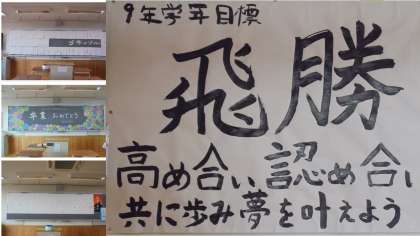 卒業 おめでとう
9年学年目標
飛勝
高め合い 認め合い
共に歩み夢を叶えよう